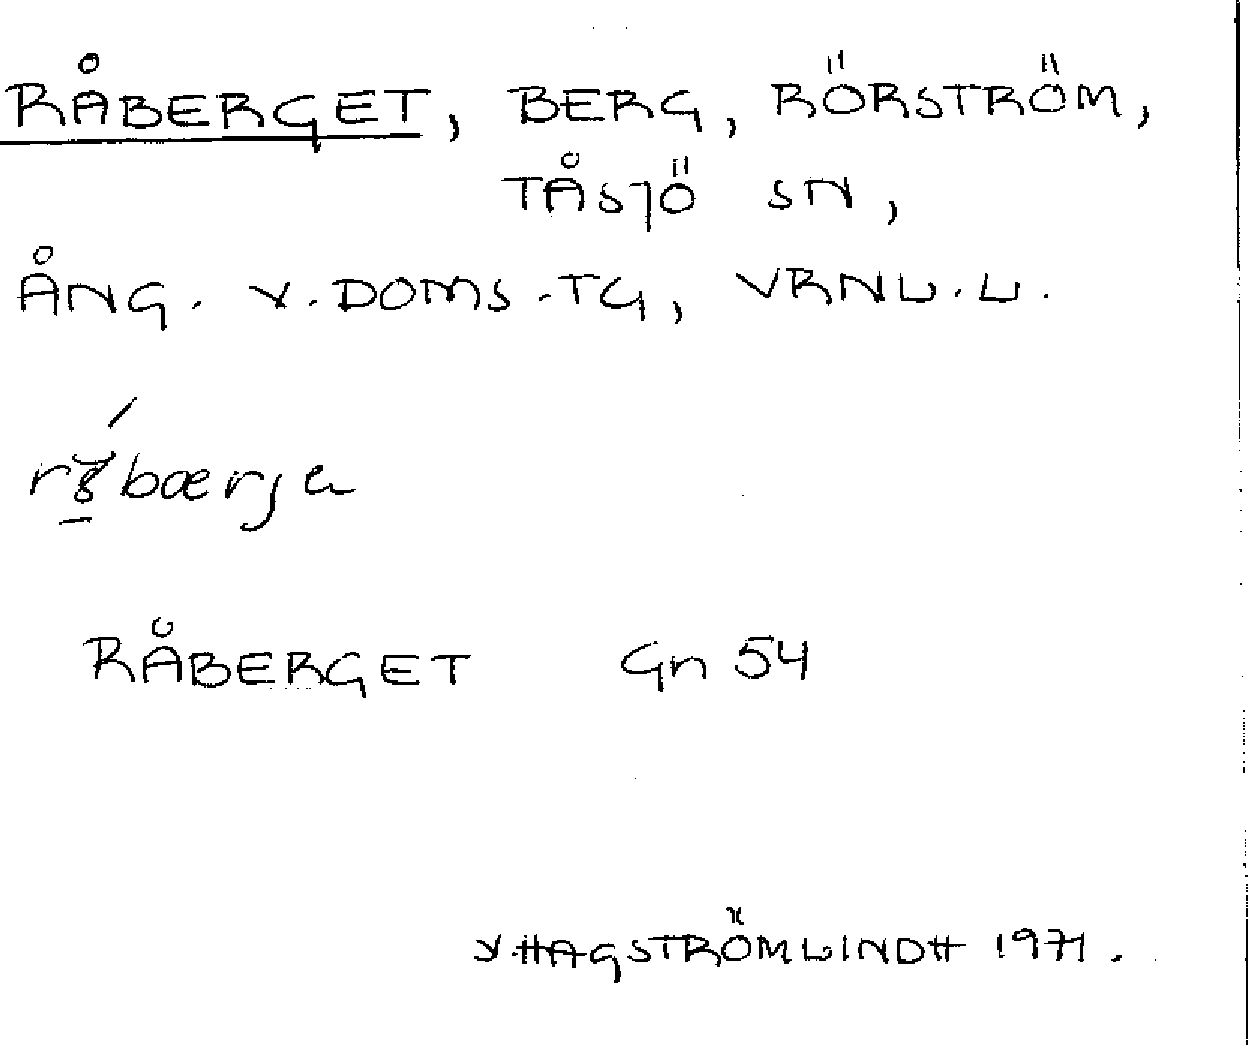 RÅBERGET, BERG, RÖRSTRÖM,
TÅSJÖ SN,
ÅNG. V. DOMS.-TG, VRNL. L.
RÅBERGET Gn 54
Y. HAGSTRÖMLINDH 1971.